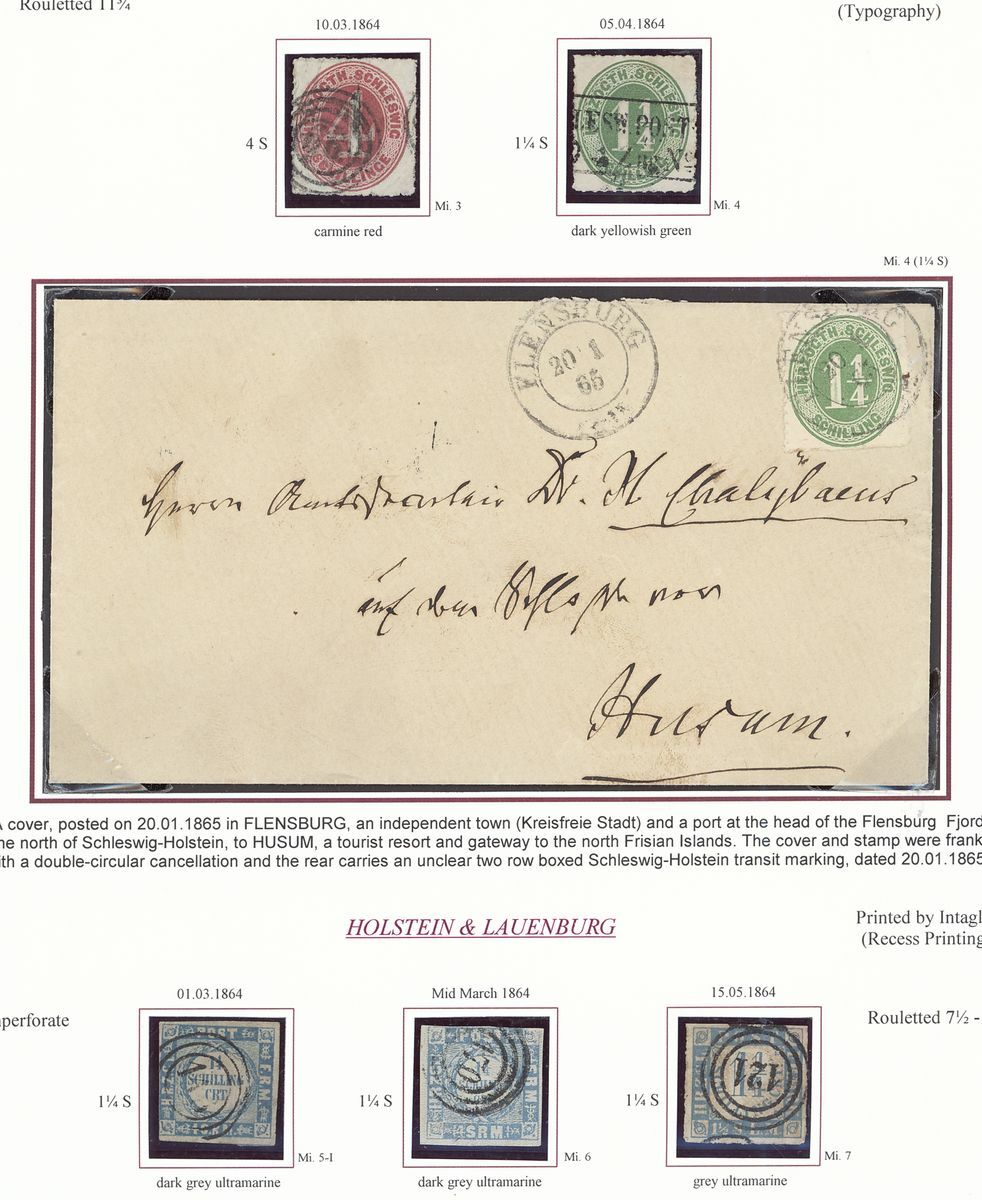 Rouletted 11¾
(Typography)
10.03.1864
05.04.1864
4 S
HERZOGTH. SCHLESWIG
4
SCHILLINGE
Mi. 3
carmine red
1¼ S
HERZOGTH. SCHLESWIG
1¼
ESW. POST
Zug No
Mi. 4
dark yellowish green
Mi. 4 (1¼ S)
FLENSBURG
20 1
65
NSBURG
20
HERZOGTH. SCHLESWIG
1¼
SCHILLING
Herrn Amtssecretair Dr. H Chalÿbaeus
auf dem Schlosse vor
Husum.
A cover, posted on 20.01.1865 in FLENSBURG, an independent town (Kreisfreie Stadt) and a port at the head of the Flensburg Fjord
he north of Schleswig-Holstein, to HUSUM, a tourist resort and gateway to the north Frisian Islands. The cover and stamp were frank
ith a double-circular cancellation and the rear carries an unclear two row boxed Schleswig-Holstein transit marking, dated 20.01.1865
HOLSTEIN & LAUENBURG
Printed by Intagl
(Recess Printing
01.03.1864
Mid March 1864
15.05.1864
mperforate
Rouletted 7½ -
1¼ S
POST
1¼
SCHILLING
CRT.
Mi. 5-I
dark grey ultramarine
1¼ S
POST
S.R.M.
Mi. 6
dark grey ultramarine
1¼ S
121
Mi. 7
grey ultramarine